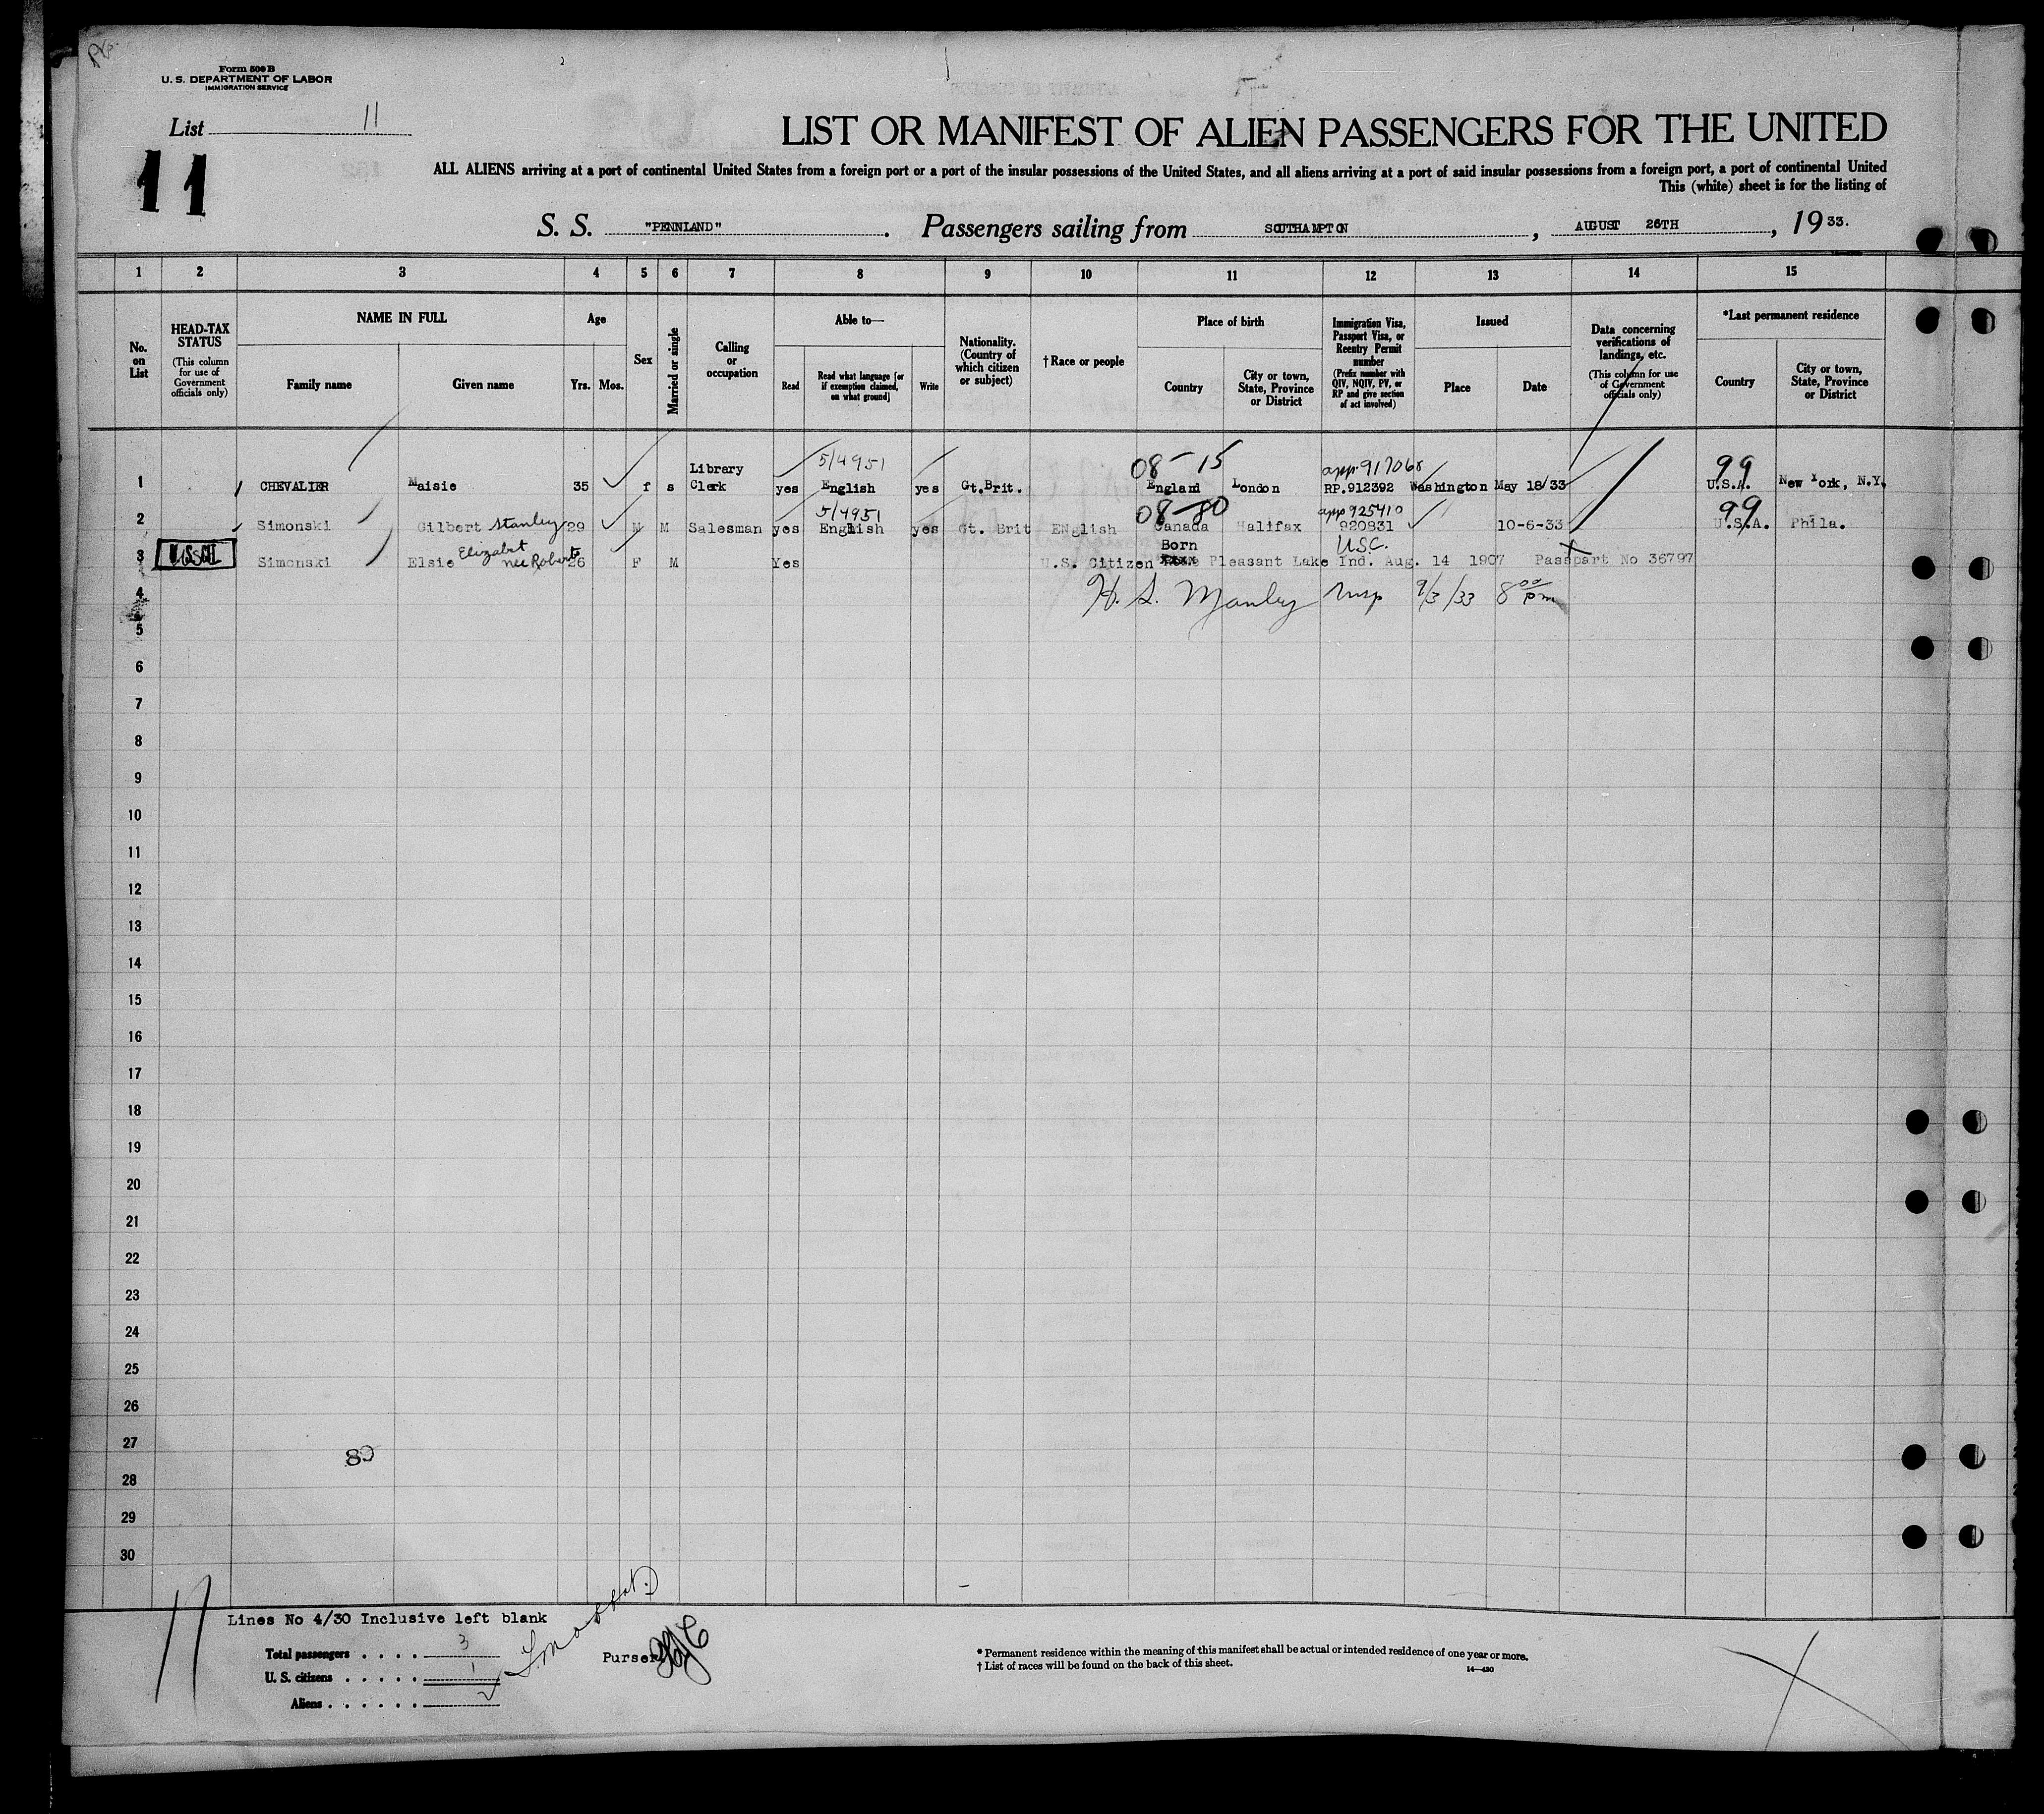 Form 500 B
U. S. DEPARTMENT OF LABOR
IMMIGRATION SERVICE
List 11
11
LIST OR MANIFEST OF ALIEN PASSENGERS FOR THE UNITED
ALL ALIENS arriving at a port of continental United States from a foreign port or a port of the insular possessions of the United States, and all aliens arriving at a port of said insular possessions from a foreign port, a port of continental United
This (white) sheet is for the listing of
S. S. "PENNLAND". Passengers sailing from SOUTHAMPTON, AUGUST 26TH, 1933.
1 2 3 4 5 6 7 8 9 10 11 12 13 14 15
No. on List
HEAD-TAX STATUS (This column for use of Government officials only)
NAME IN FULL
Family name
Given name
Age
Yrs. Mos.
Sex
Married or single
Calling or occupation
Able to—
Read
Read what language [or if exemption claimed, on what ground]
Write
Nationality. (Country of which citizen or subject)
† Race or people
Place of birth
Country
City or town, State, Province or District
Immigration Visa, Passport Visa, or Reentry Permit number (Prefix number with QIV, NQIV, PV, or RP and give section of act involved)
Issued
Place
Date
Data concerning verifications of landings, etc. (This column for use of Government officials only)
*Last permanent residence
Country
City or town, State, Province or District
5/4951 08-15 app. 917068 99
1 CHEVALIER Maisie 35 f s Library Clerk yes English yes Gt.Brit. England London RP.912392 Washington May 18/33 U.S.A. New York, N.Y.
5/4951 08-80 app 925410 99
2 Simonski Gilbert Stanley 29 M M Salesman yes English yes Gt. Brit ENglish Canada Halifax 920831 10-6-33 U.S.A. Phila.
Elizabet Born U.S.C.
3 USCH Simonski Elsie née Roberts 26 F M Yes U.S. Citizen Pleasant Lake Ind. Aug. 14 1907 Passport No 36797
4 H. S. Manley Insp 9/3/33 8 00 pm
5
6
7
8
9
10
11
12
13
14
15
16
17
18
19
20
21
22
23
24
25
26
27
80
28
29
30
11
Lines No 4/30 Inclusive left blank
Total passengers . . . . 3
U. S. citizens . . . . . 1
Aliens . . . . . .
Purser
* Permanent residence within the meaning of this manifest shall be actual or intended residence of one year or more.
† List of races will be found on the back of this sheet.
14—430